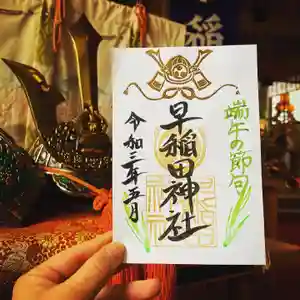 端午の節句
早稲田神社
令和三年五月
稲